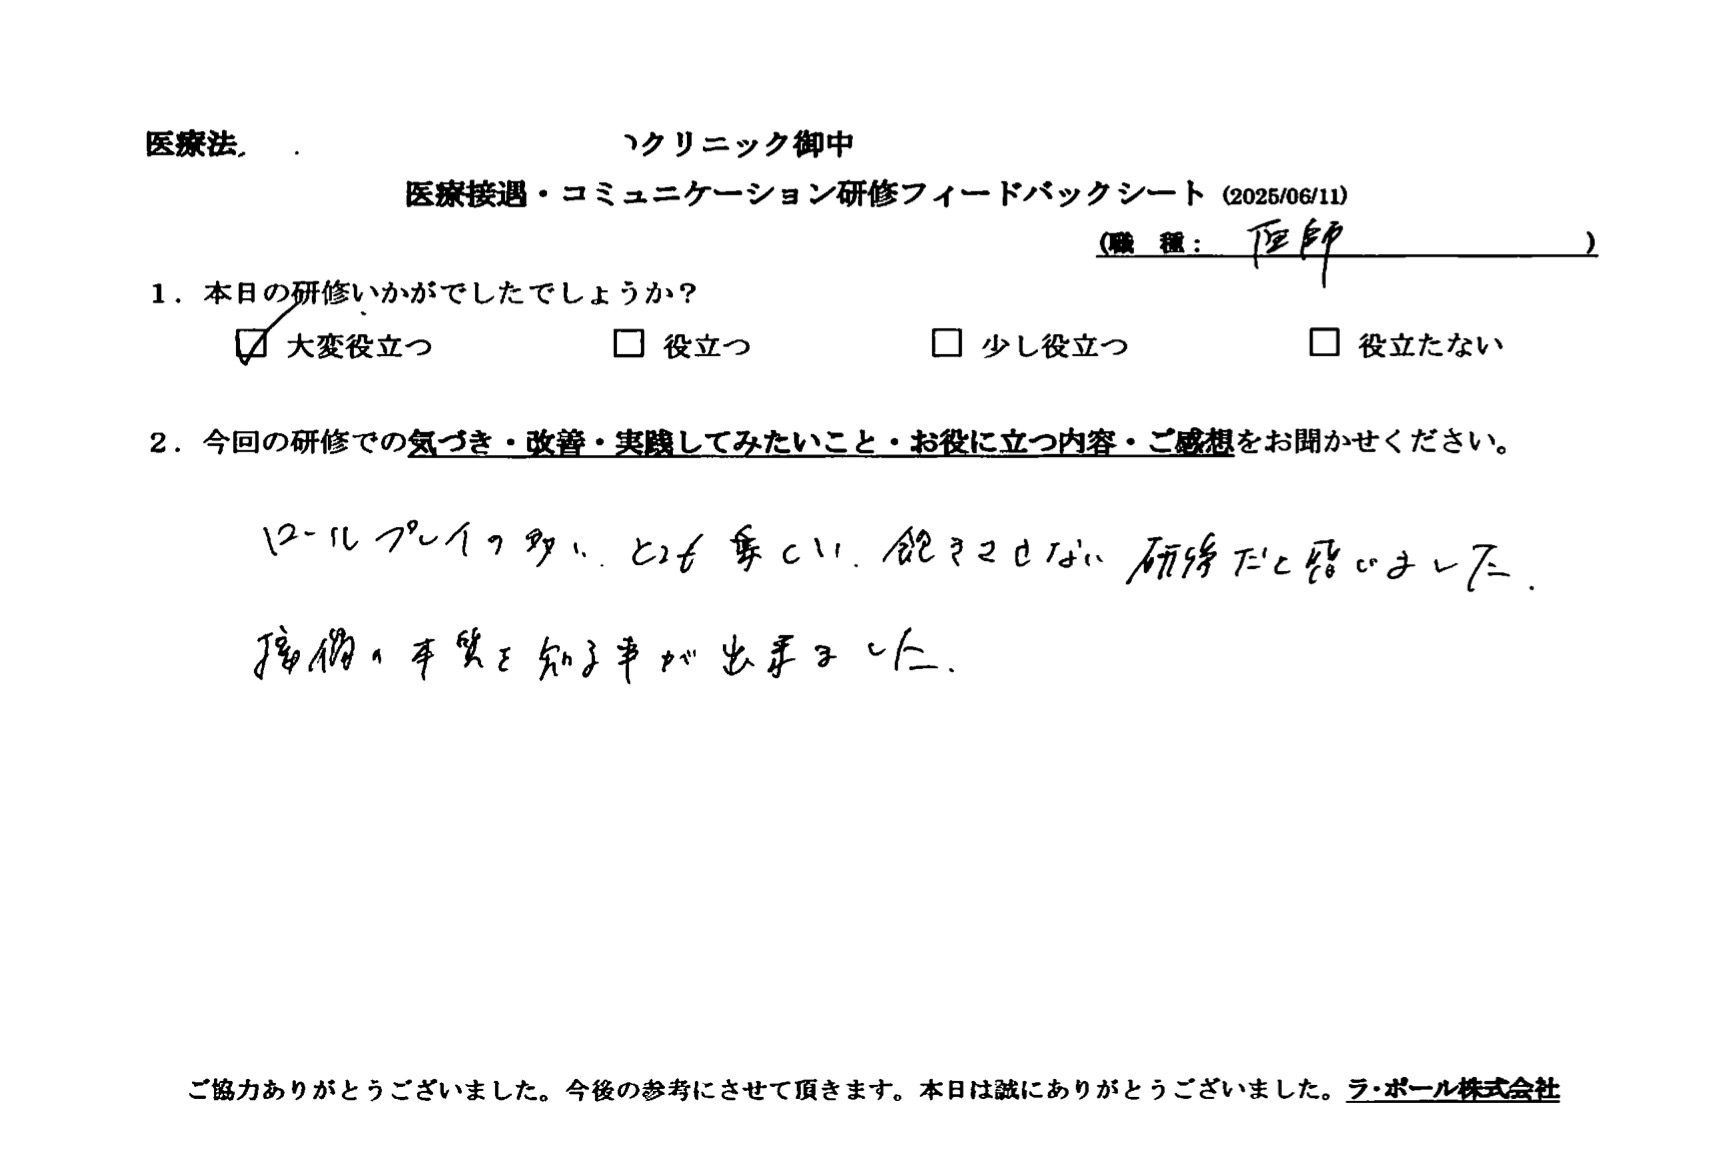 医療法 クリニック御中
医療接遇・コミュニケーション研修フィードバックシート (2025/06/11)
(職 種: 医師 )
1. 本日の研修いかがでしたでしょうか?
☑ 大変役立つ □ 役立つ □ 少し役立つ □ 役立たない
2. 今回の研修での気づき・改善・実践してみたいこと・お役に立つ内容・ご感想をお聞かせください。
ロールプレイの多い、とても楽しい、飽きさせない研修だと感じました.
接遇の本質を知る事が出来ました.
ご協力ありがとうございました。今後の参考にさせて頂きます。本日は誠にありがとうございました。ラ・ポール株式会社